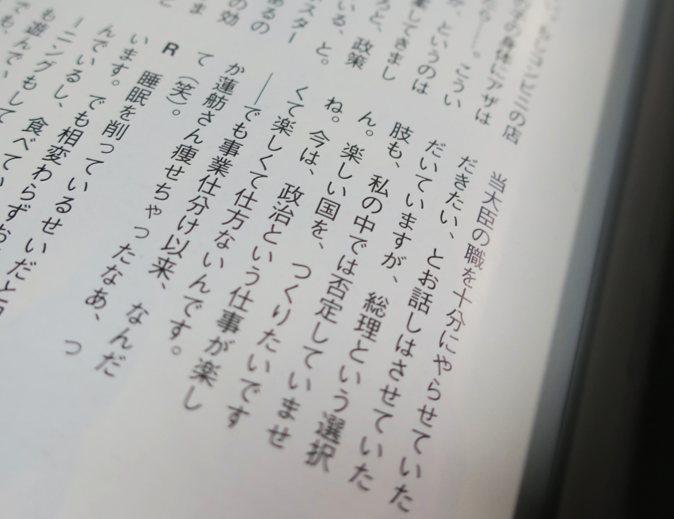 当大臣の職を十分にやらせていた
だきたい、とお話しはさせていた
だいていますが、総理という選択
肢も、私の中では否定していませ
ん。楽しい国を、つくりたいです
ね。今は、政治という仕事が楽し
くて楽しくて仕方ないんです。
――でも事業仕分け以来、なんだ
か蓮舫さん痩せちゃったなあ、っ
て(笑)。
R 睡眠を削っているせいだと
います。でも相変わらず
んでいるし、食べてい
ーニングもして
も遊んで
でも、
コンビニの店
の身体にアザは
ら――。こうい
か、というのは
案してきまし
ろと、政策
いる、と。
スター
あるの
の効